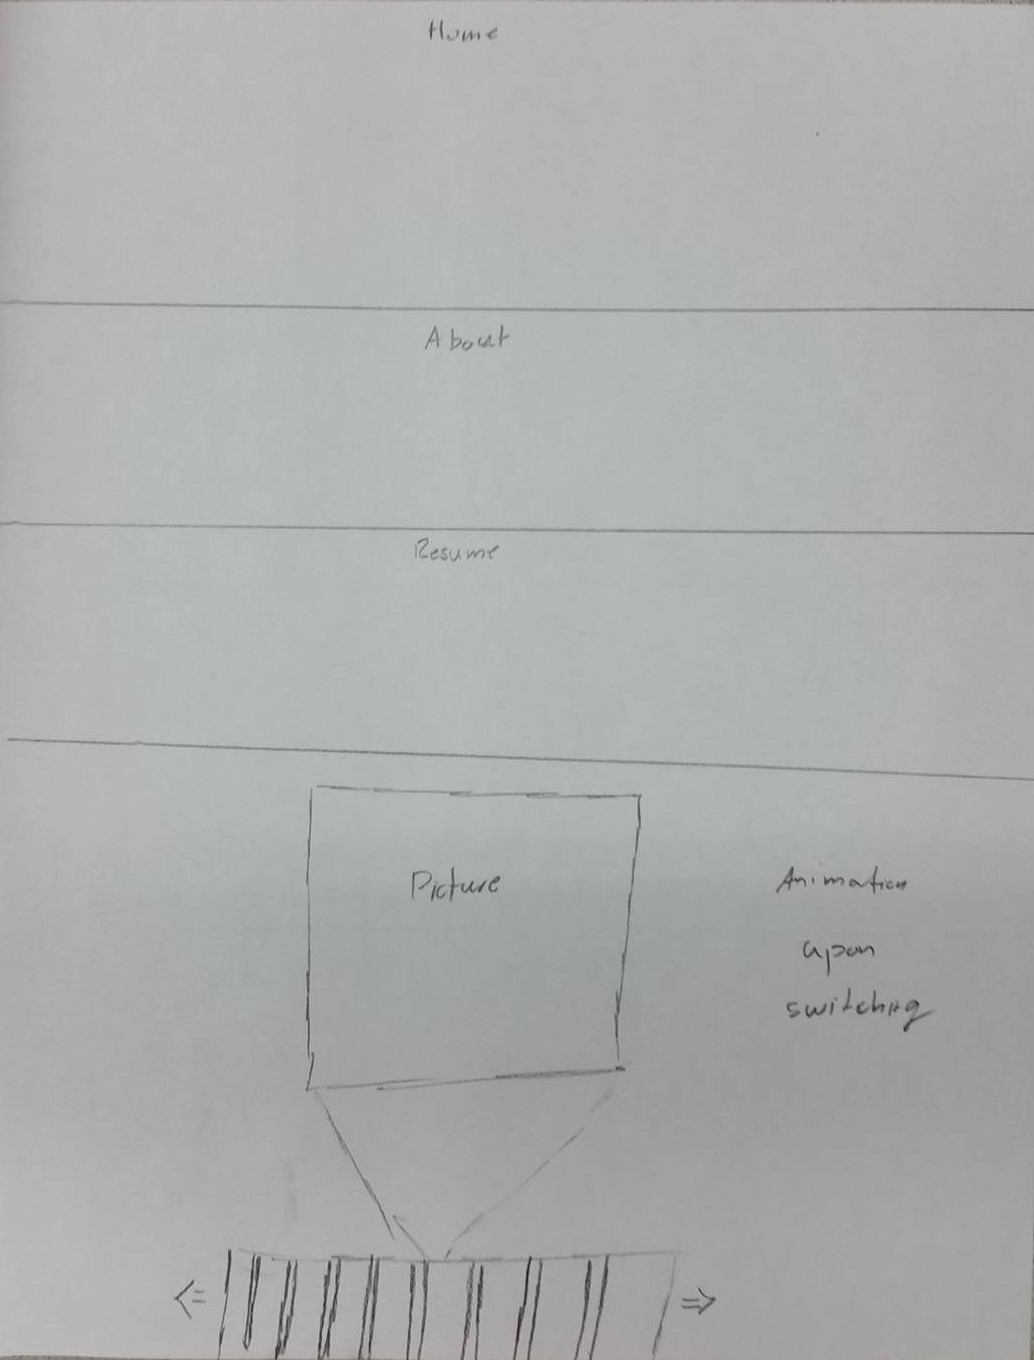 Home
About
Resume
Picture
Animation
upon
switching